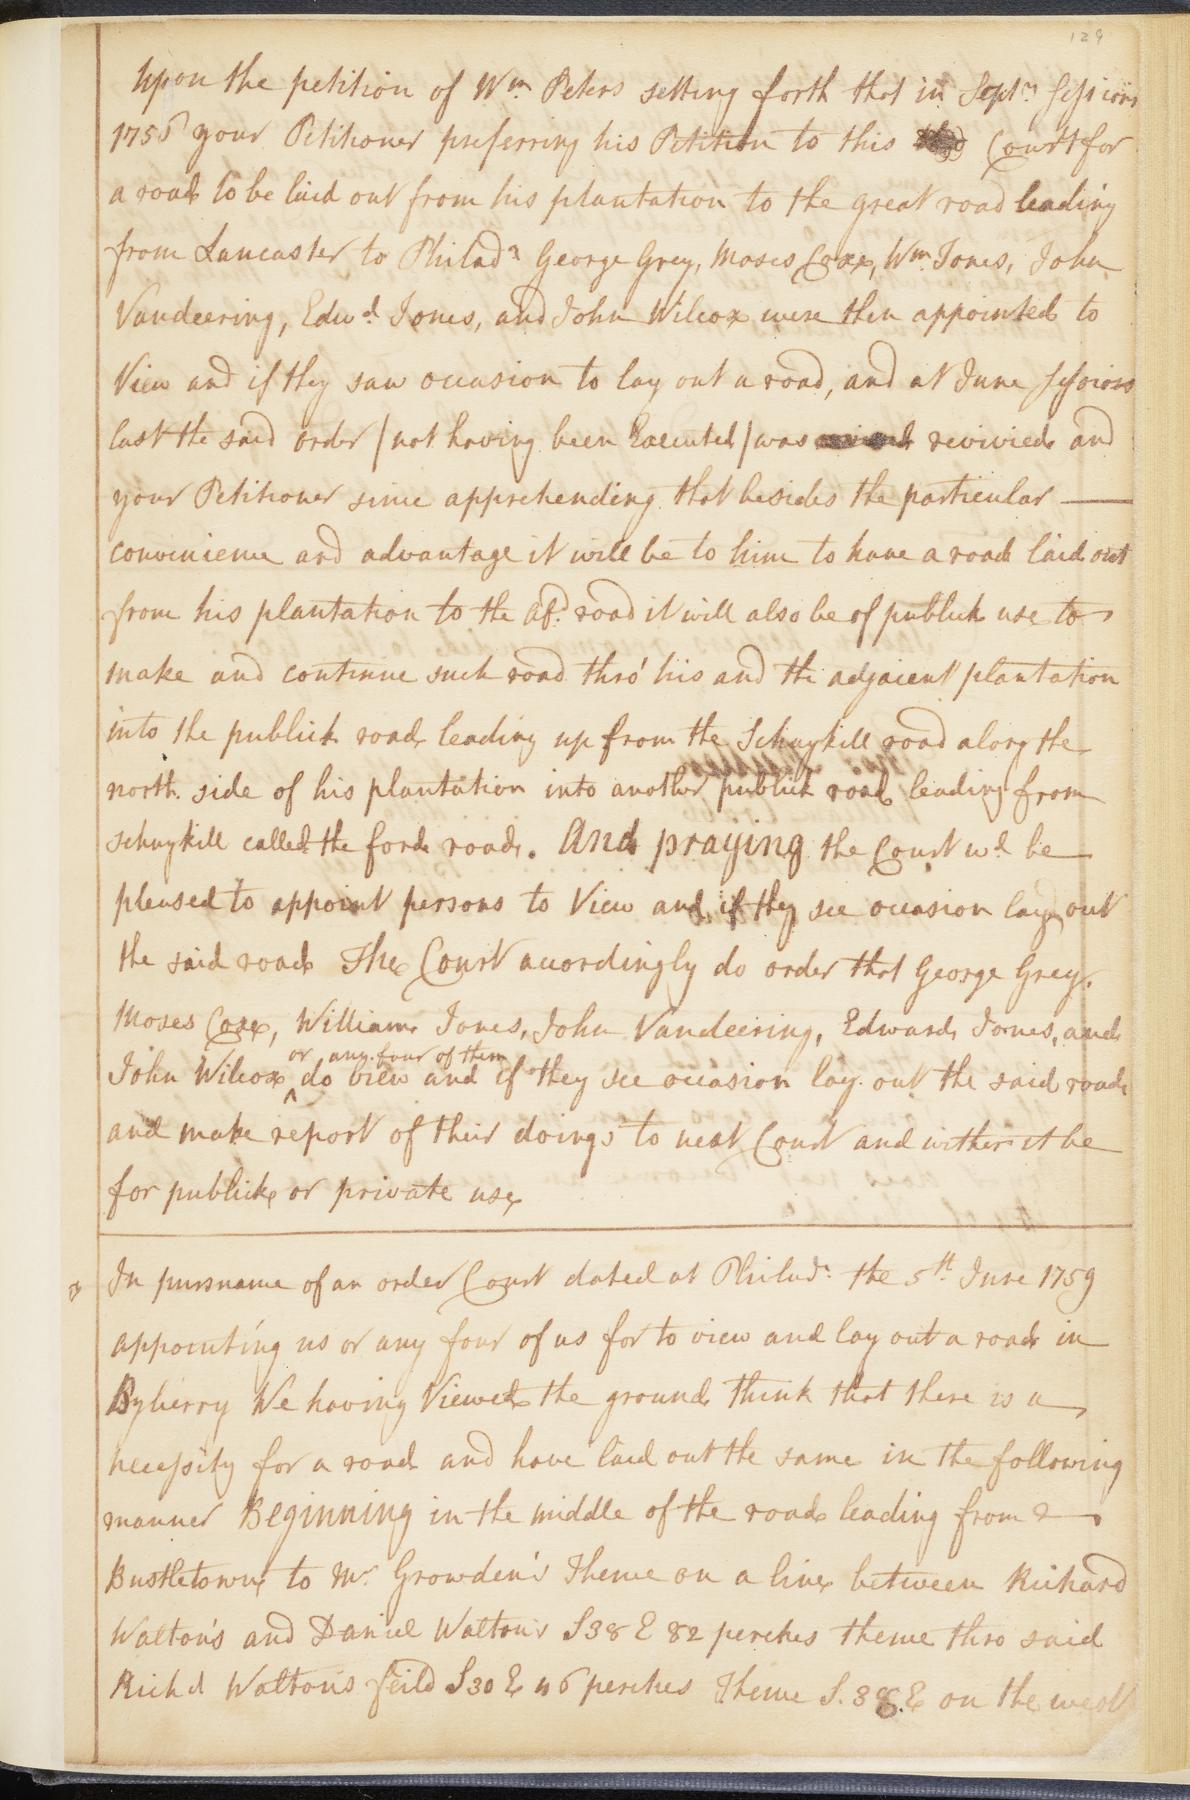 129
Upon the petition of Wm. Peters setting forth that in Septr. Sessions
1756 your Petitioner preferring his Petition to this Court for
a road to be laid out from his plantation to the great road leading
from Lancaster to Philada. George Grey, Moses Coxe, Wm. Jones, John
Vandeering, Edwd. Jones, and John Wilcox were then appointed to
View and if they saw occasion to lay out a road, and at June Sessions
last the said order / not having been Executed / was revivied and
your Petitioner since apprehending that besides the particular —
convinience and advantage it will be to him to have a road laid out
from his plantation to the afd. road it will also be of publick use to
make and continue such road thro' his and the adjacent plantation
into the publick road leading up from the Schuylkill road along the
north side of his plantation into another publick road leading from
Schuylkill called the ford road. And praying the Court wd. be
pleased to appoint persons to View and if they see occasion lay out
the said road The Court accordingly do order that George Grey,
Moses Coxe, William Jones, John Vandeering, Edward Jones, and
or any four of them
John Wilcox ^ do view and if they see occasion lay out the said road
and make report of their doings to next Court and wither it be
for publick or private use
In pursuance of an order Court dated at Philada. the 5th. June 1759
appointing us or any four of us for to view and lay out a road in
Byberry We having Viewed the ground think that there is a
necessity for a road and have laid out the same in the following
manner Beginning in the middle of the road leading from
Bustletown to Mr. Growden's Thence on a line between Richard
Walton's and Daniel Walton's S 38 E 82 perches thence thro said
Richd Walton's feild S 30 E 46 perches Thence S. 38. E on the west